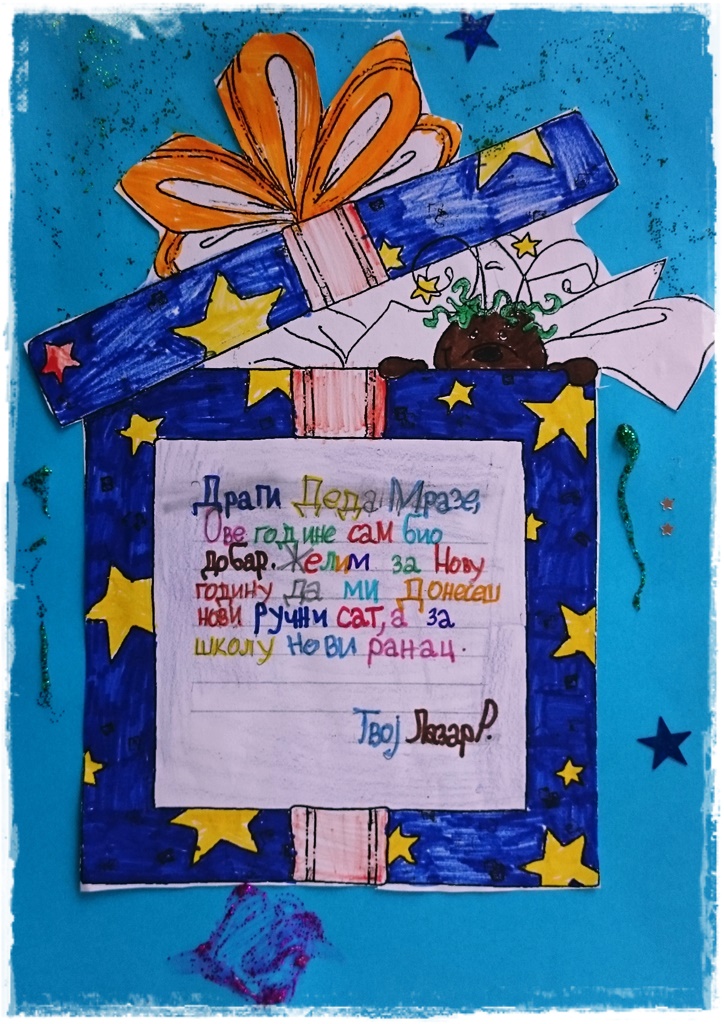 Драги Деда Мразе,
Ове године сам био
добар. Желим за Нову
годину да ми Донесеш
нови ручни сат, а за
школу нови ранац.
Твој Лазар Р.